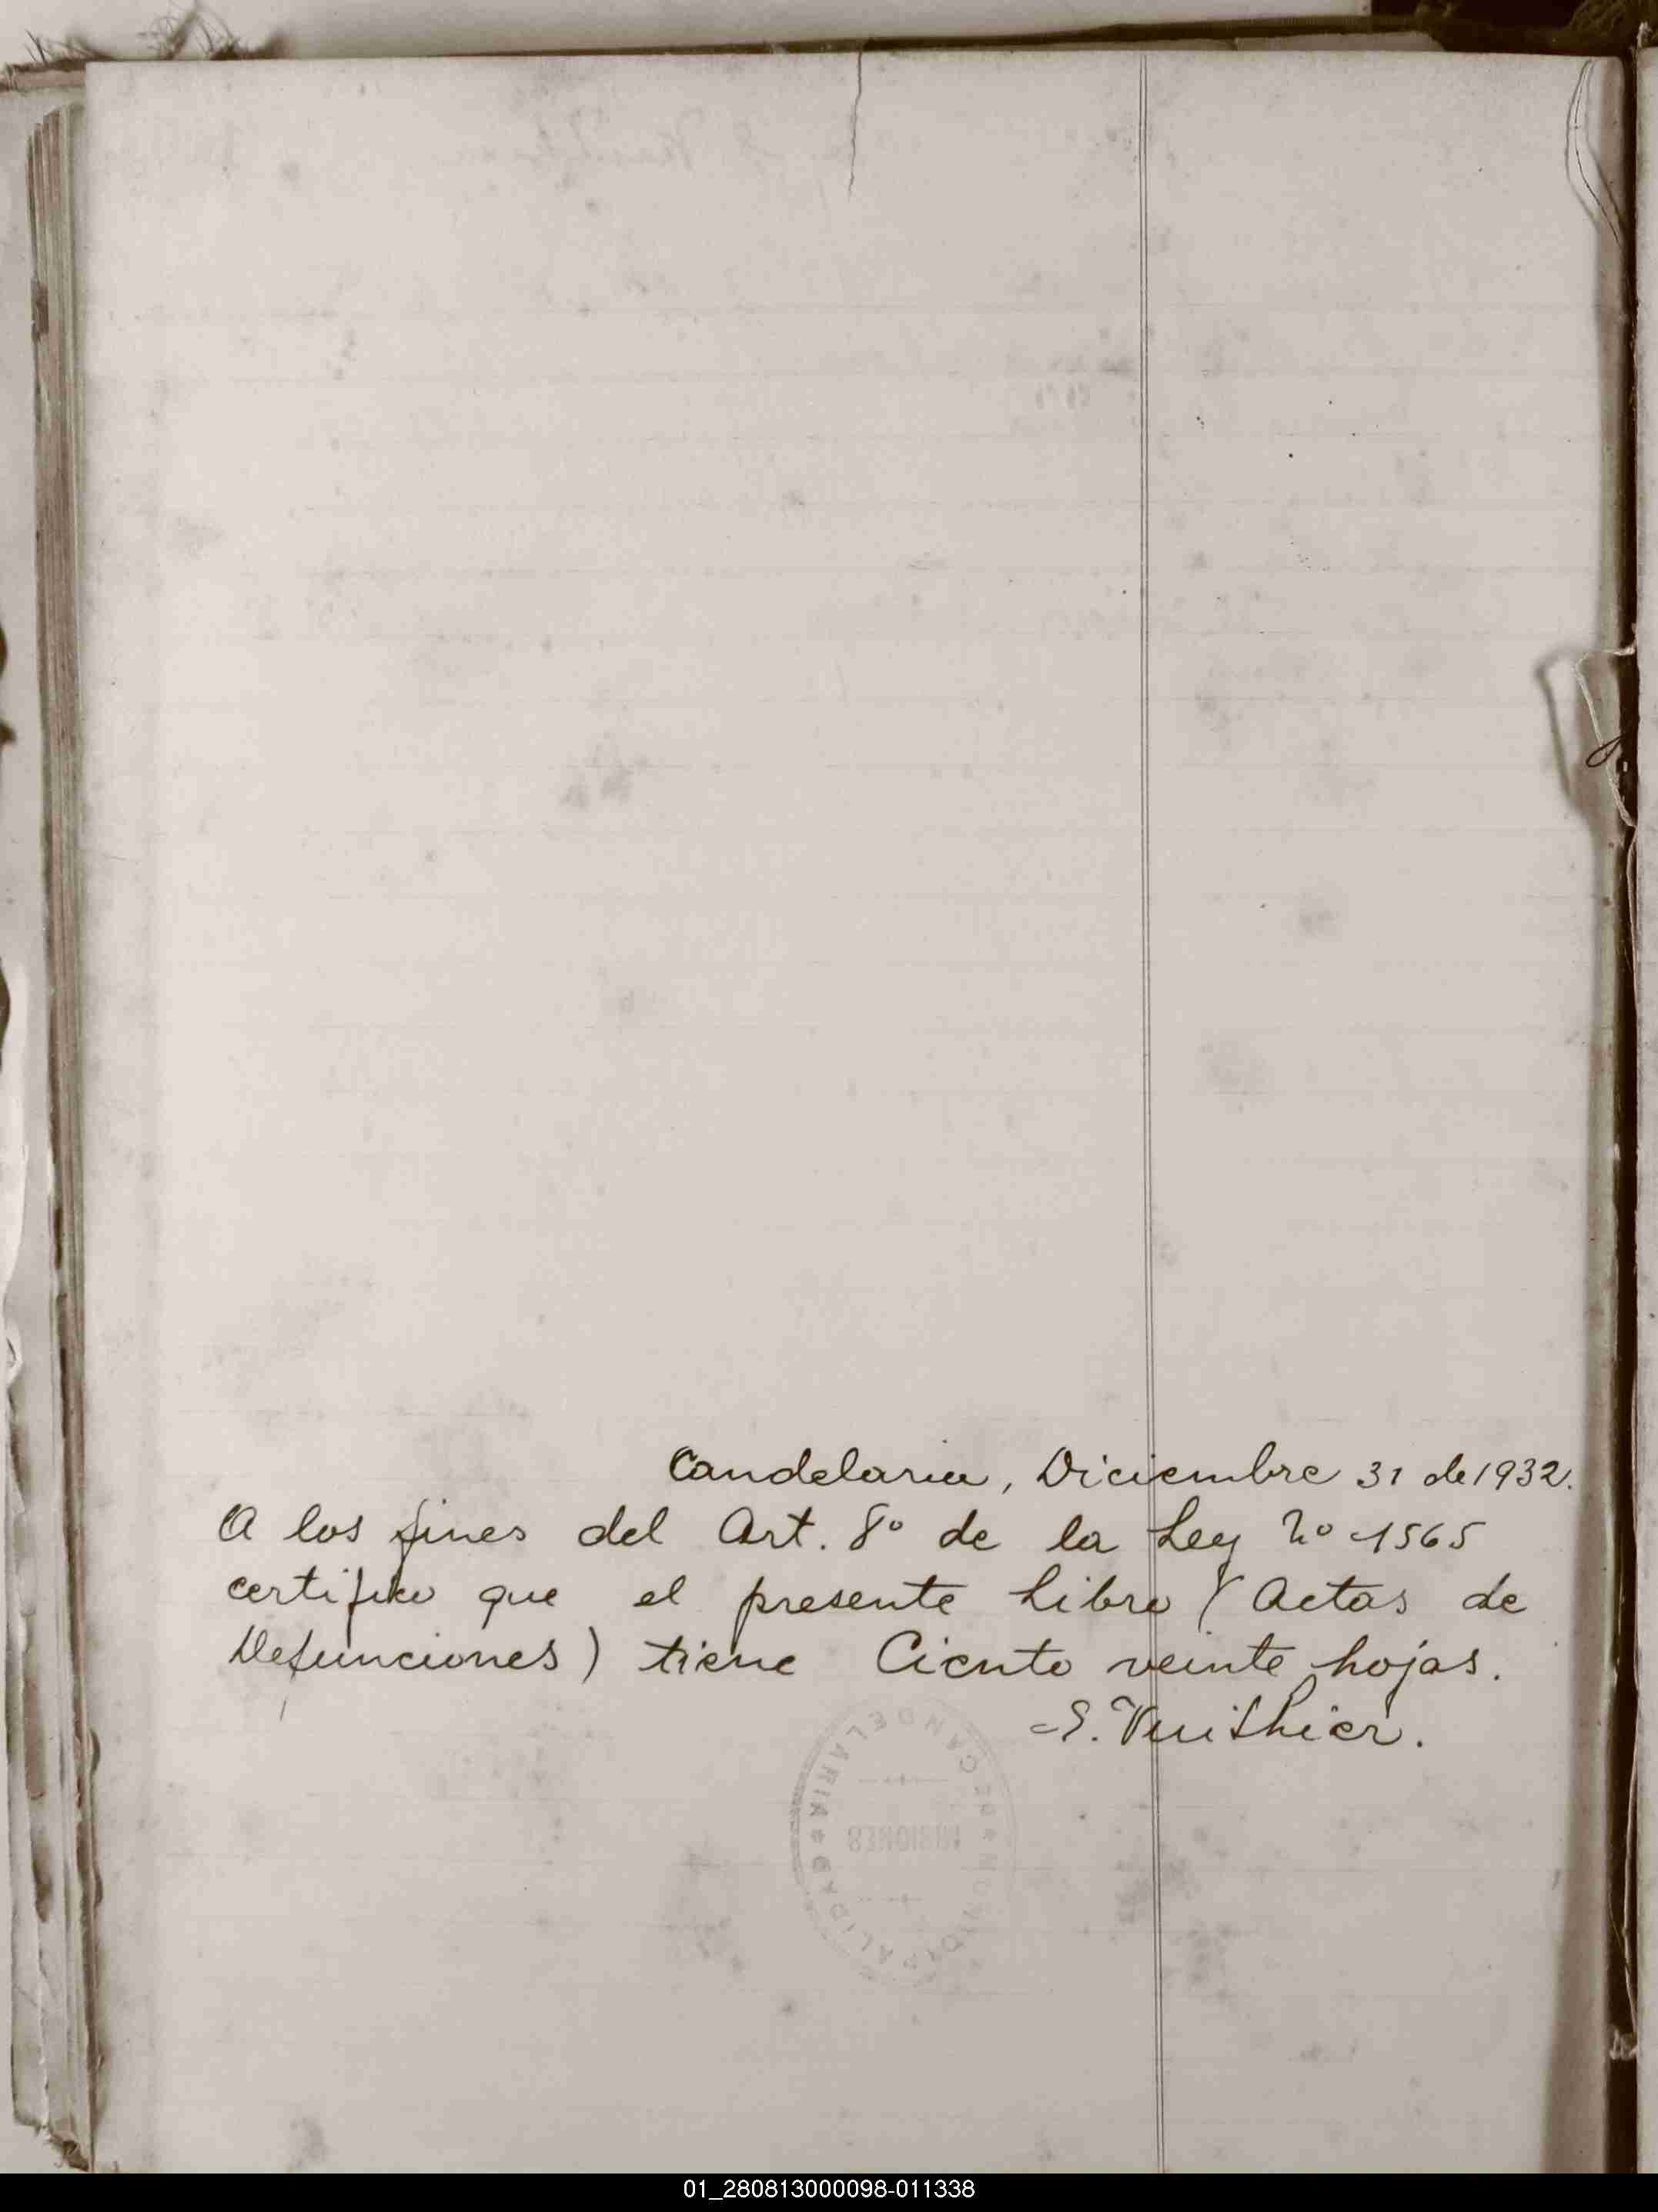 Candelaria, Diciembre 31 de 1932.
A los fines del Art. 8º de la Ley Nº 1565
certifico que el presente Libro (Actas de
Defunciones) tiene Ciento veinte hojas.
E. Vuithier.
MUNICIPALIDAD DE CANDELARIA
MISIONES
01_280813000098-011338